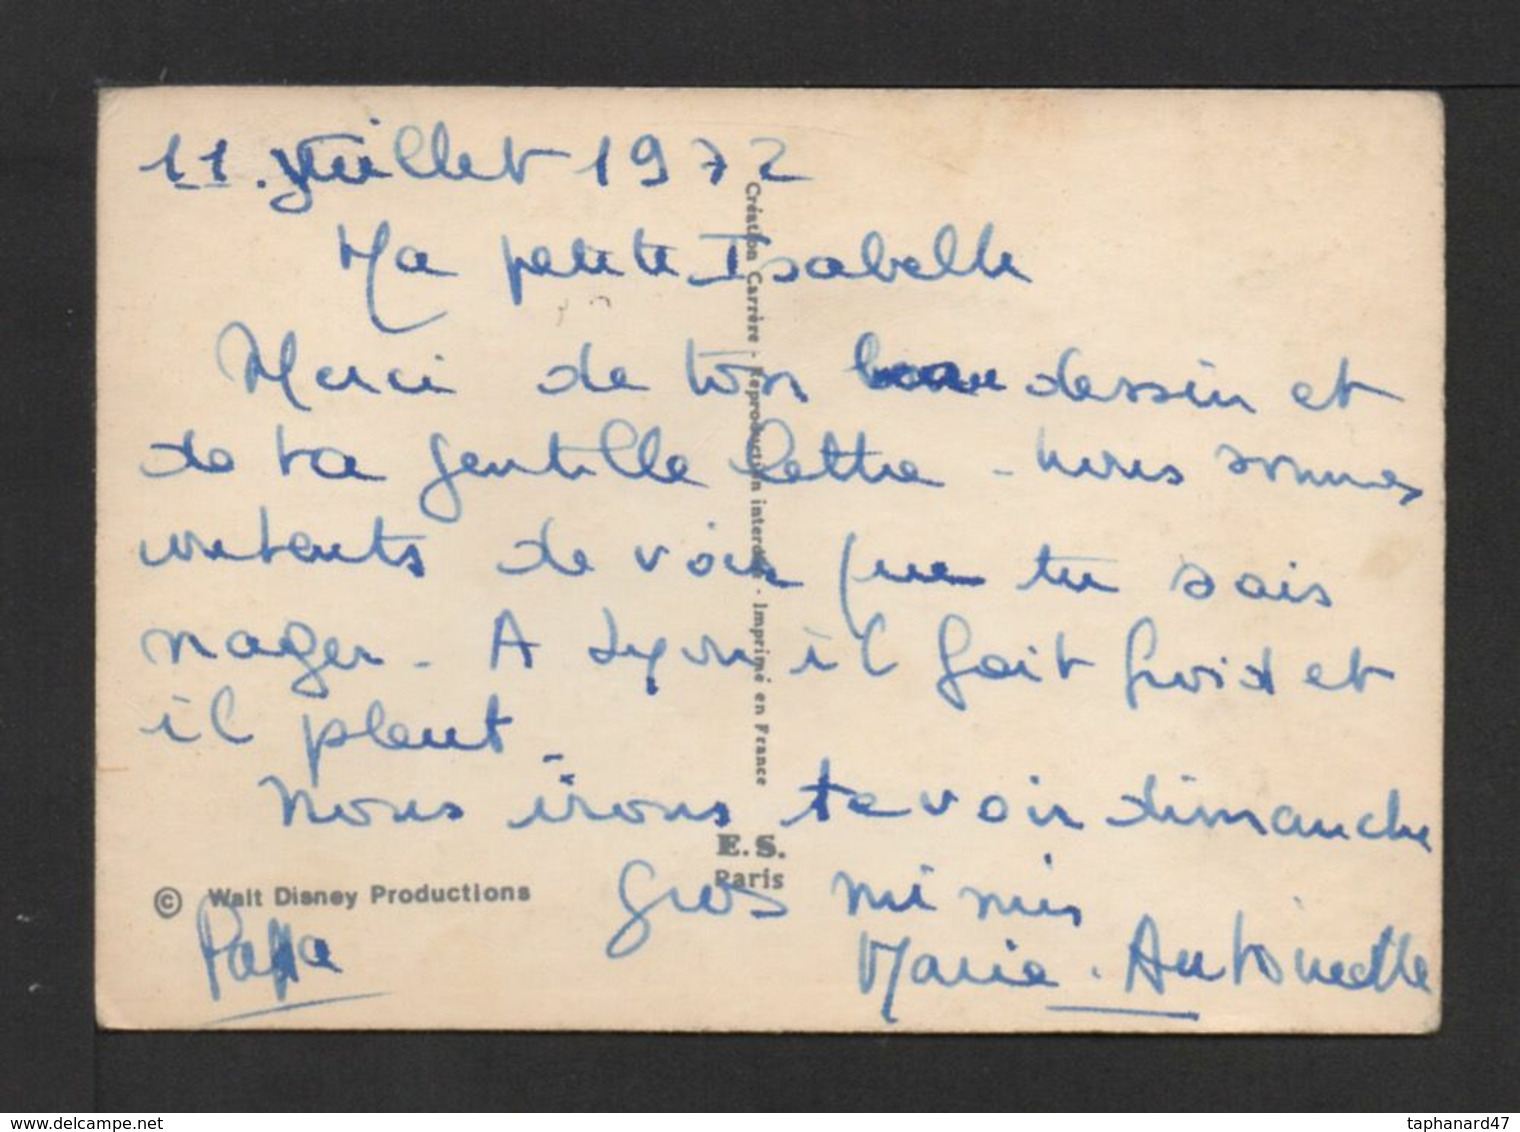 11 Juillet 1972
Ma petite Isabelle
Merci de ton dessin et
de ta gentille lettre - nous sommes
contents de voir que tu sais
nager - A Lyon il fait froid et
il pleut -
Nous irons te voir dimanche
Gros mimis
Papa
Marie-Antoinette
Création Carrère - Reproduction interdite - Imprimé en France
E.S.
Paris
© Walt Disney Productions
delcampe.net
taphanard47